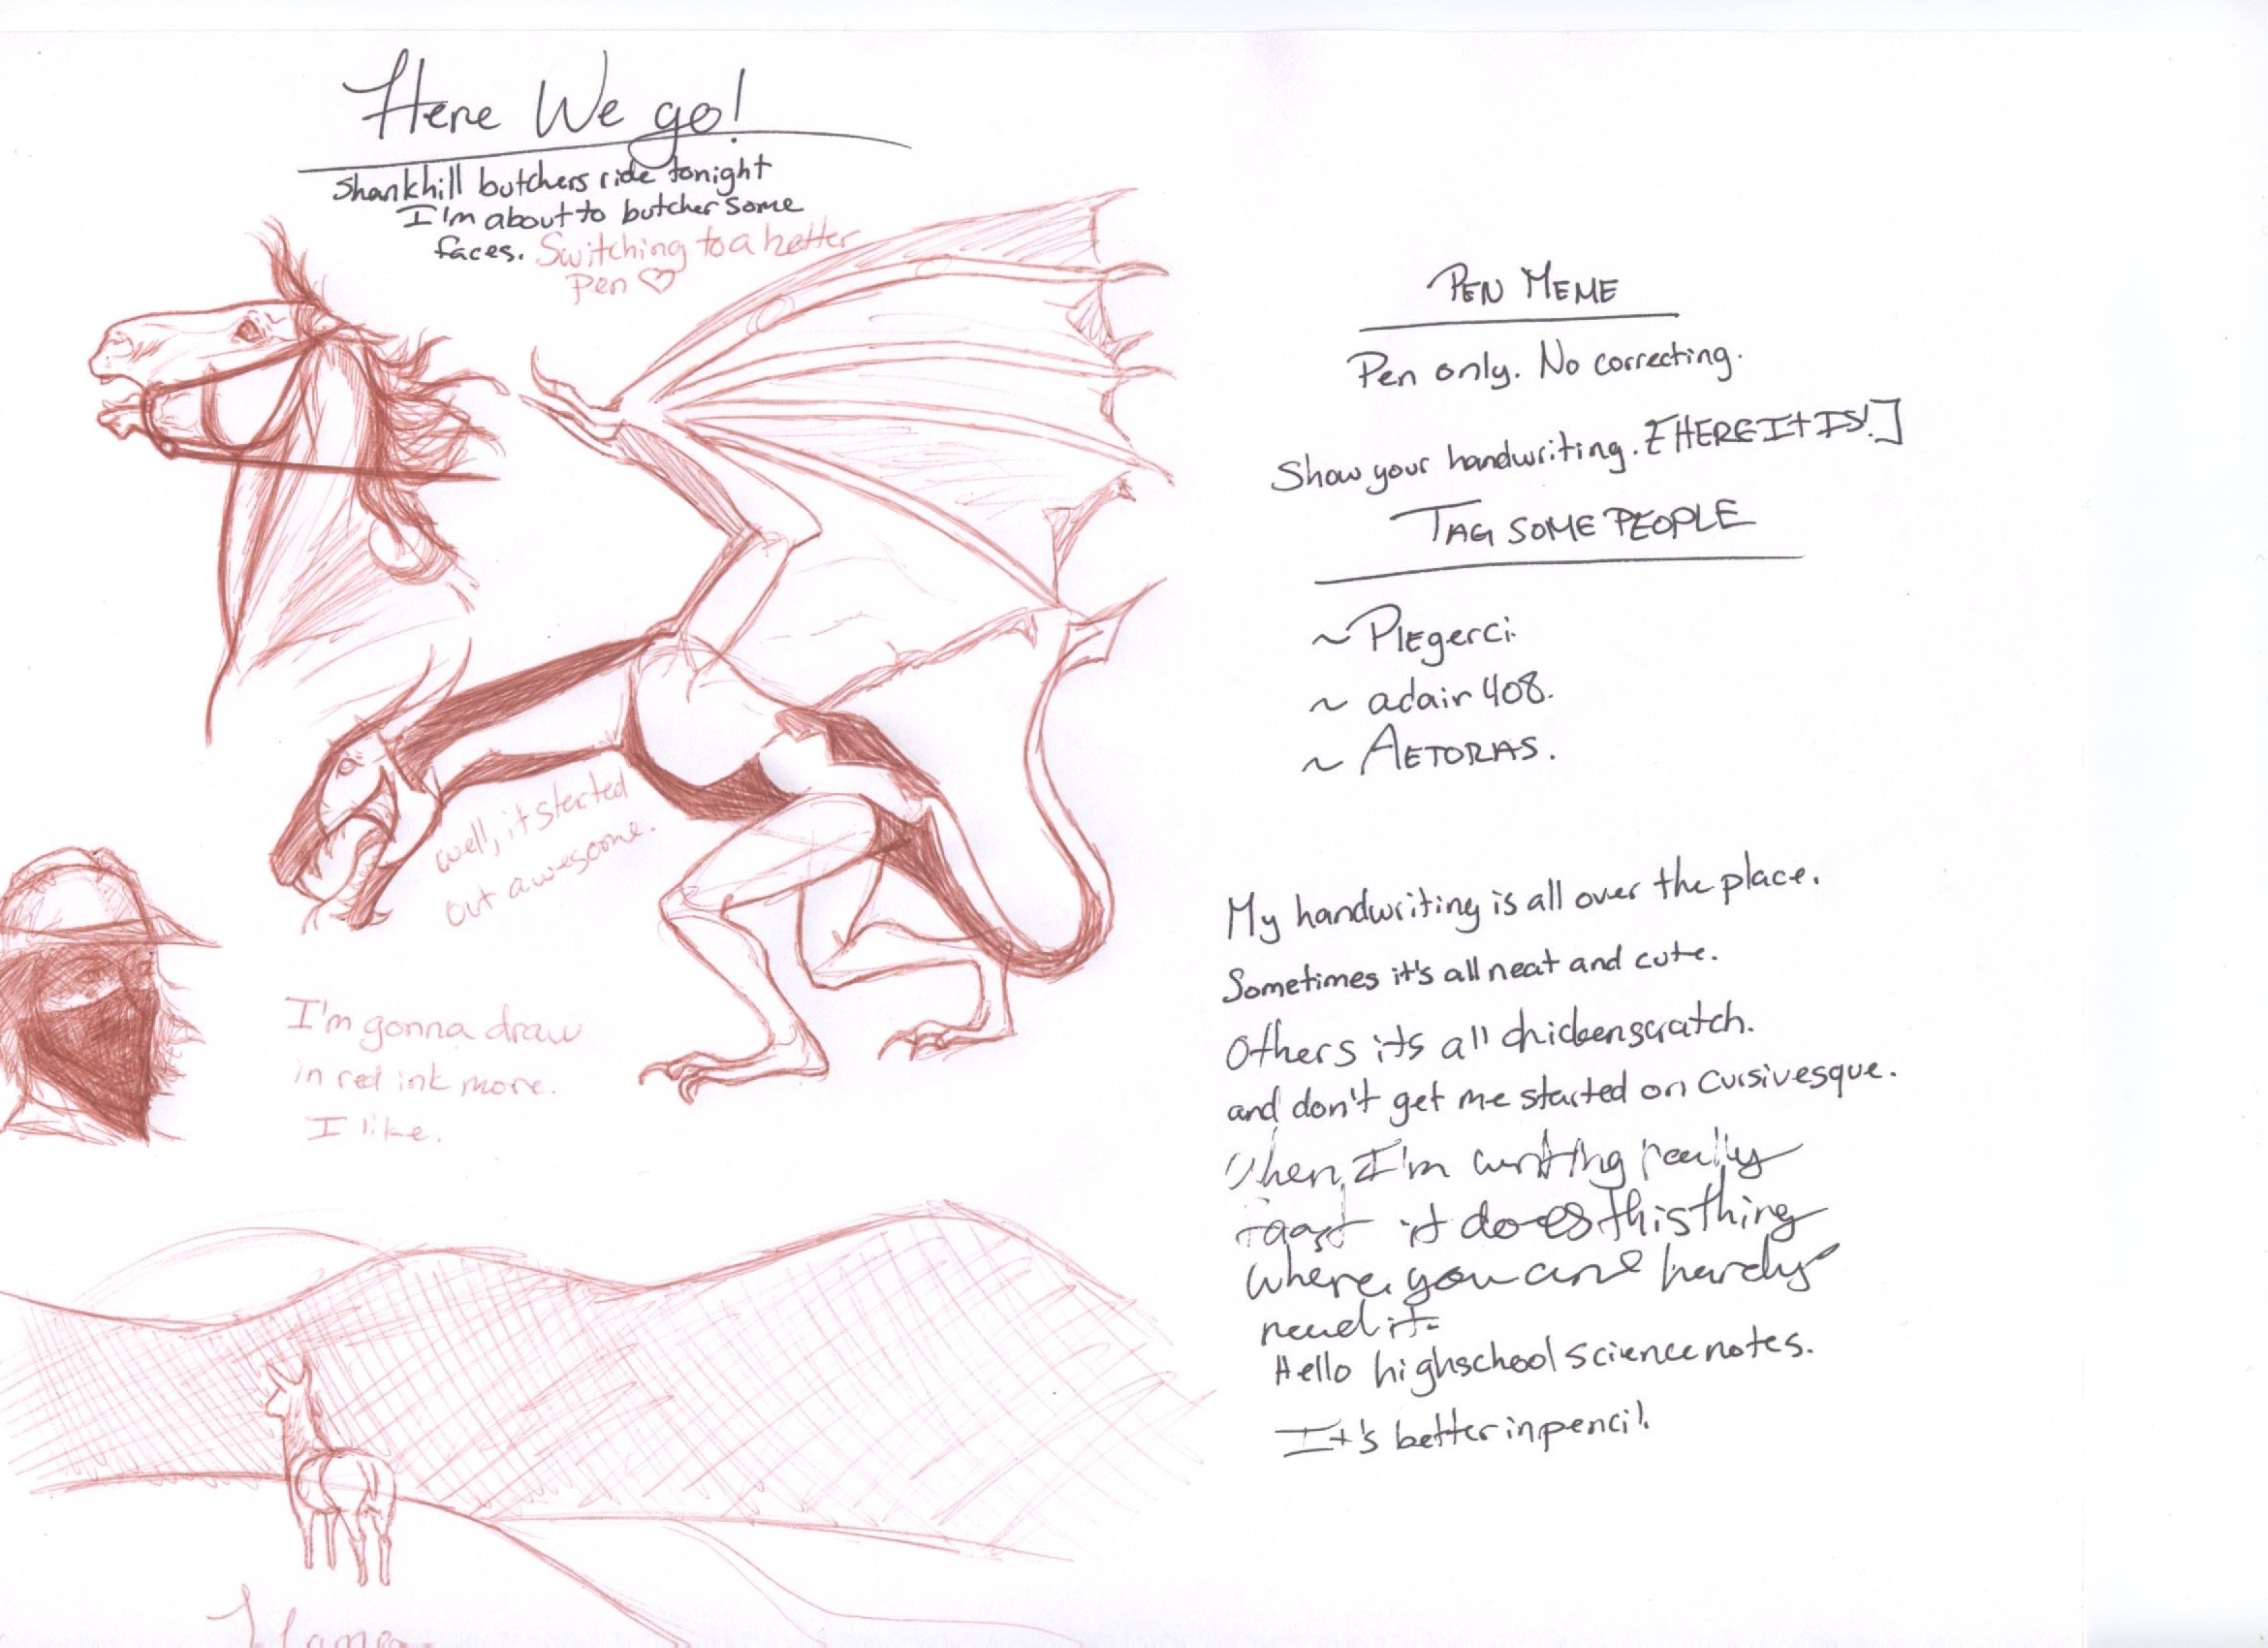 Here We go!
Shankhill butchers ride tonight
I'm about to butcher some
faces. Switching to a better
Pen ♡
well, it started
out awesome.
I'm gonna draw
in red ink more.
I like.
Llama
PEN MEME
Pen only. No correcting.
Show your handwriting. [HERE It IS!]
TAG SOME PEOPLE
~ Plegerci.
~ adair408.
~ AETORAS.
My handwriting is all over the place.
Sometimes it's all neat and cute.
Others its all chickenscratch.
and don't get me started on cursivesque.
When I'm writing really
faast it does this thing
where you can hardly
read it.
Hello highschool science notes.
It's better in pencil.